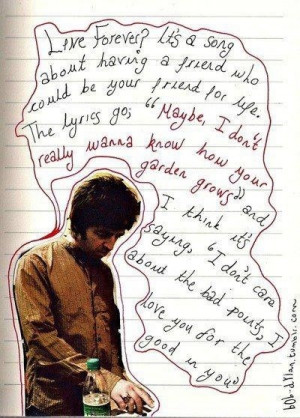 Live Forever? It's a song
about having a friend who
could be your friend for life.
The lyrics go; "Maybe, I don't
really wanna know how your
garden grows" and
I think it's
saying, "I don't care
about the bad points, I
love you for the
good in you"